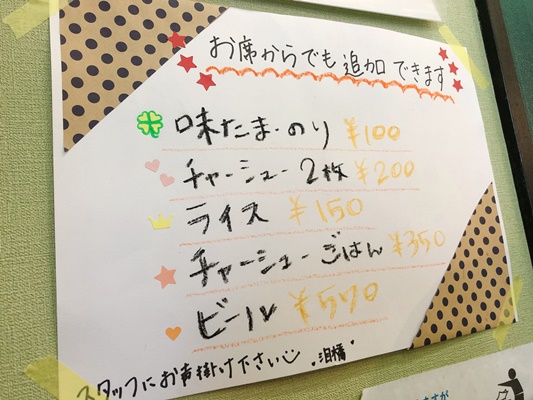 お席からでも追加できます
味たま・のり ¥100
チャーシュー2枚 ¥200
ライス ¥150
チャーシューごはん ¥350
ビール ¥570
スタッフにお声掛け下さい